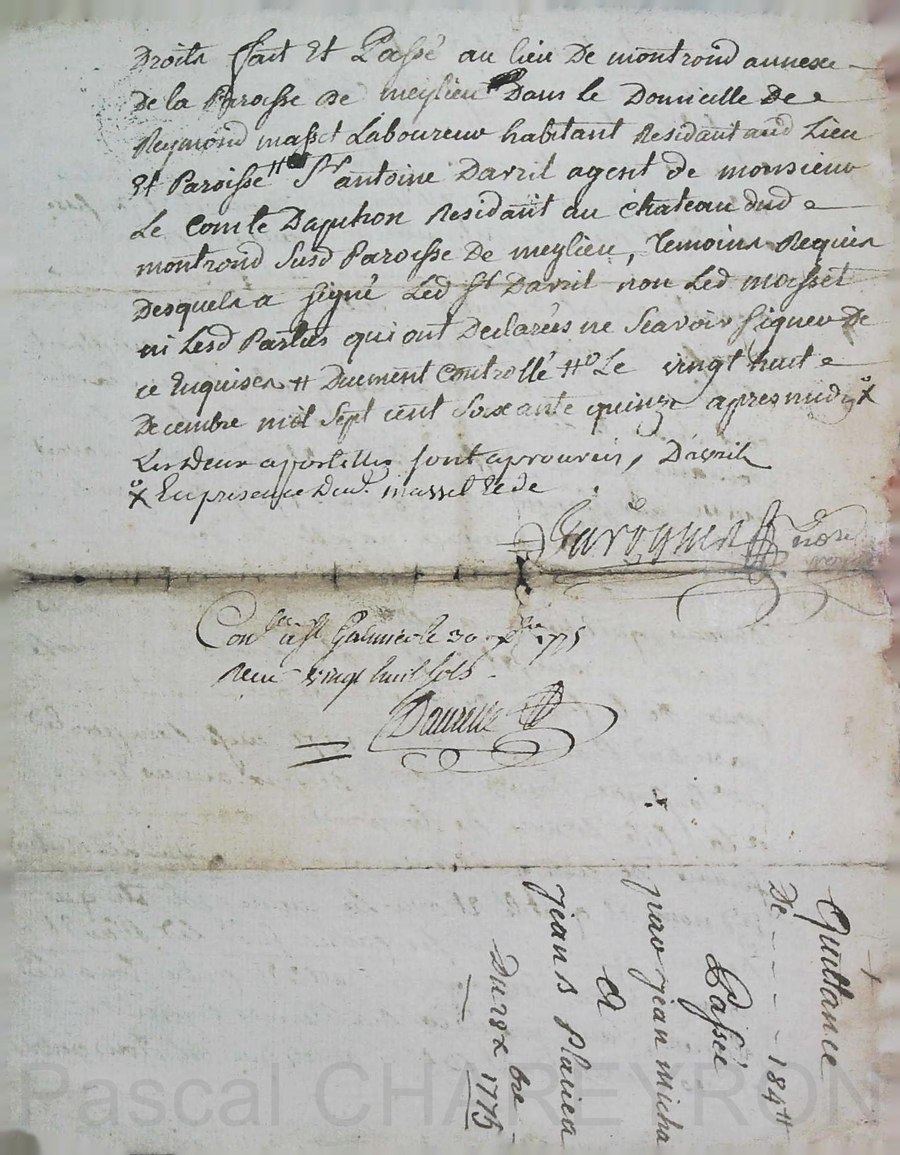 Droits fait Et Passé au lieu De montrond annexe
De la Paroisse de meylieu Dans le Domicille De
Reymond masset Laboureur habitant Residant aud Lieu
Et Paroisse Sr antoine Davril agent de monsieur
Le Comte Dapchon Residant au chateau dud
montrond Susd Paroisse De meylieu, Temoins Requis
Desquels a signé Led Sr Davril non Led masset
ni Lesd Parties qui ont Declarées ne Scavoir signer De
ce Enquises # Duement Controllé #o Le vingt huit
Decembre mil Sept cent Soixante quinze apres midy x
Les Deux apostilles sont aprouvées, Davril
x En presence Dud. masset
Conlé à St Galmier le 30 xbre 1775
Reçu vingt huit sols
Quittance
De - - - 184 #
Passée
par jean micha
A
jean B Plavica
Du 28 xbre
1775
Pascal CHAREYRON